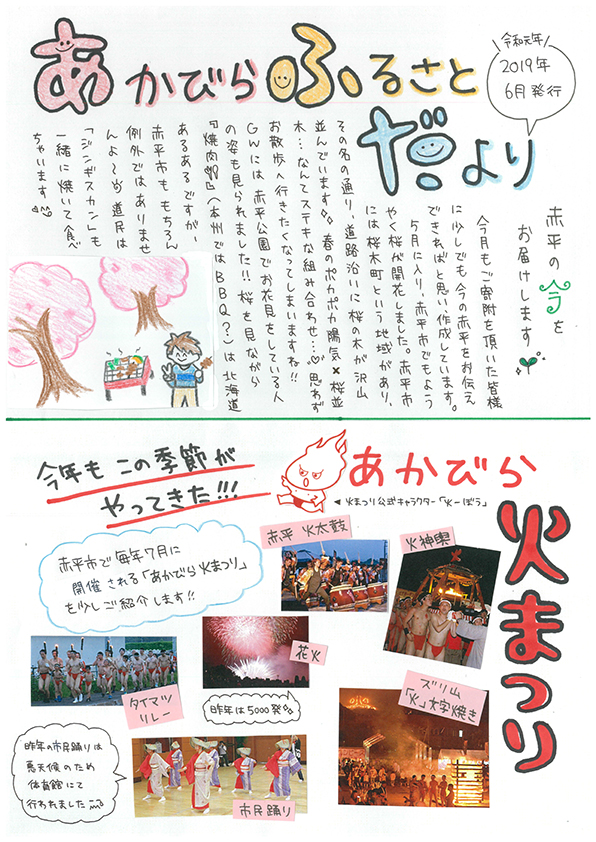 あかびら ふるさと
だより
令和元年
2019年
6月発行
赤平の今を
お届けします
今月もご寄附を頂いた皆様
に少しでも今の赤平をお伝え
できればと思い作成しています。
5月に入り、赤平市でもよう
やく桜が開花しました。赤平市
には桜木町という地域があり、
その名の通り、道路沿いに桜の木が沢山
並んでいます 春のポカポカ陽気×桜並
木…なんてステキな組み合わせ…♡思わず
お散歩へ行きたくなってしまいますね!!
GWには赤平公園でお花見をしている人
の姿も見られました!!桜を見ながら
『焼肉』(本州ではBBQ?)は北海道
あるあるですが、
赤平市ももちろん
例外ではありませ
んよ〜 道民は
「ジンギスカン」も
一緒に焼いて食べ
ちゃいます
今年も この季節が
やってきた!!!
あかびら
火まつり
◀ 火まつり公式キャラクター「火ーぼう」
赤平市で毎年7月に
開催される「あかびら火まつり」
を少しご紹介します!!
赤平 火太鼓
火神輿
花火
昨年は5000発
タイマツ
リレー
ズリ山
「火」文字焼き
昨年の市民踊りは
悪天候のため
体育館にて
行われました
市民踊り